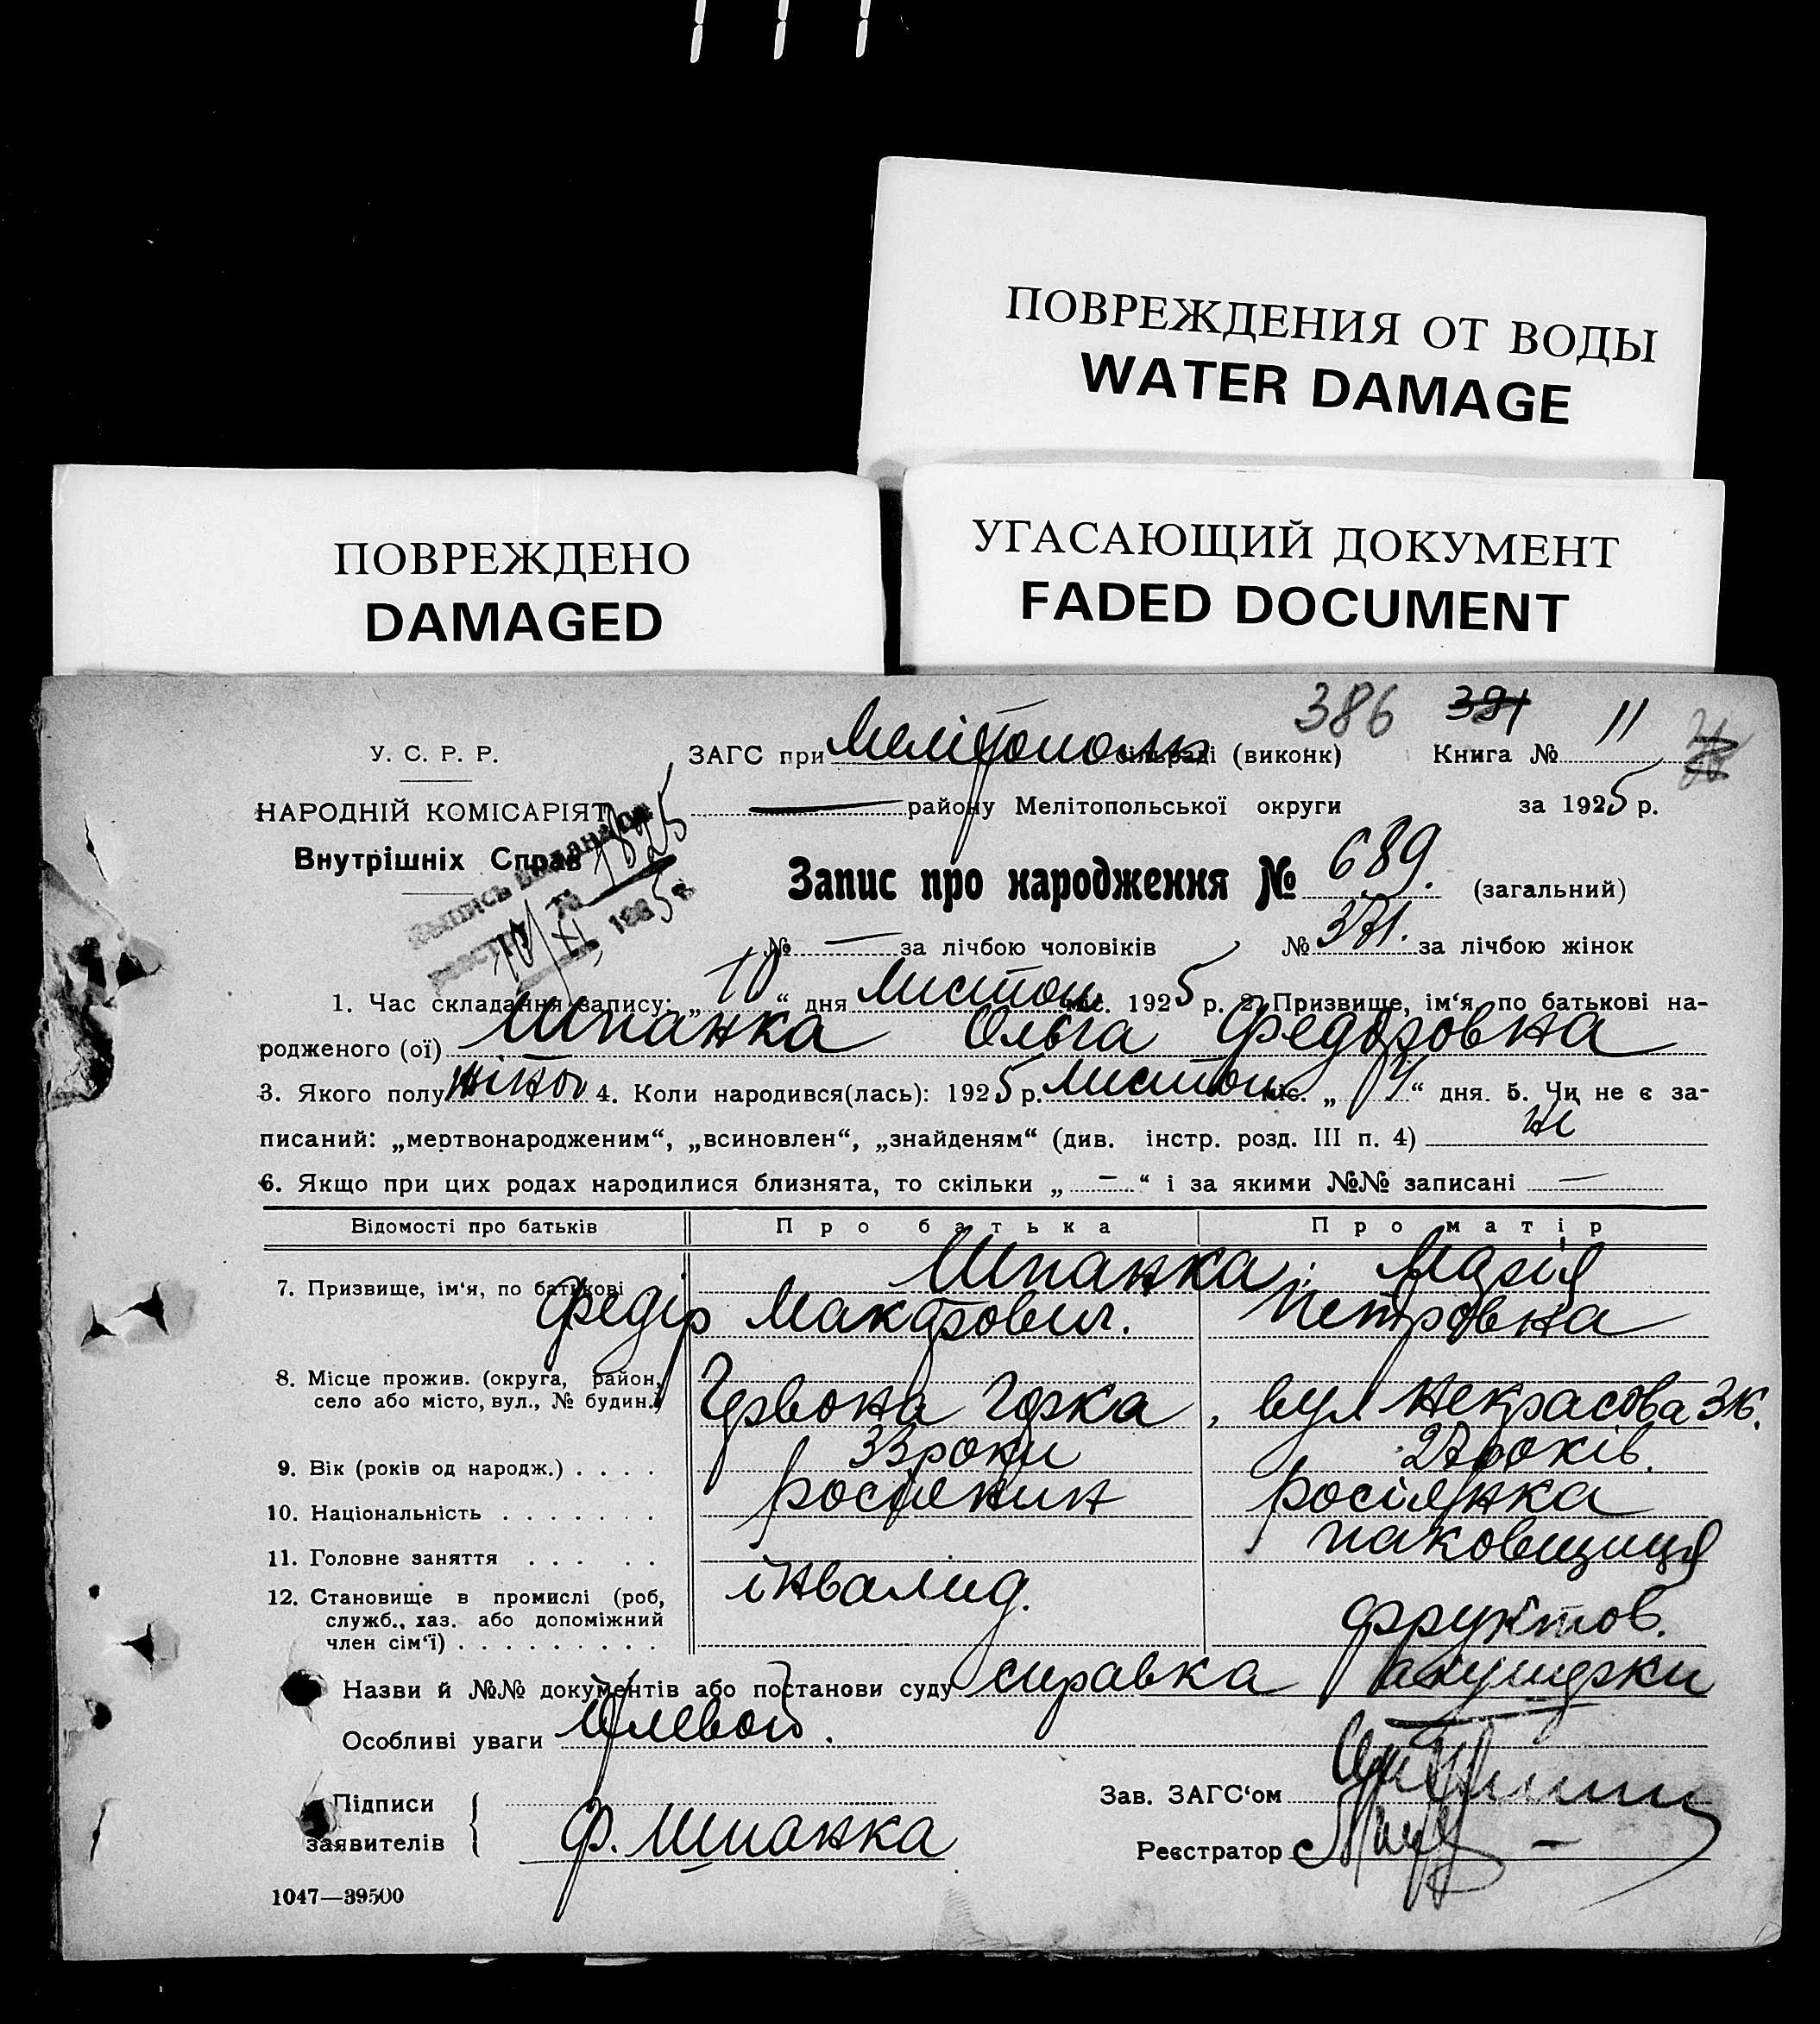 ПОВРЕЖДЕНИЯ ОТ ВОДЫ
WATER DAMAGE
ПОВРЕЖДЕНО
DAMAGED
УГАСАЮЩИЙ ДОКУМЕНТ
FADED DOCUMENT
386 381
У. С. Р. Р.
ЗАГС при Мелітополь сільраді (виконк) Книга № 11
НАРОДНІЙ КОМІСАРІЯТ
району Мелітопольської округи за 1925 р.
Внутрішніх Справ
1825
Запис про народження № 689. (загальний)
№ — за лічбою чоловіків № 371. за лічбою жінок
1. Час складання запису: „10“ дня листоп міс. 1925 р. 2. Призвище, ім‘я, по батькові на-
родженого (ої) Шпанка Ольга Федоровна
3. Якого полу жіноч 4. Коли народився(лась): 1925 р. листоп міс. „ “ дня. 5. Чи не є за-
писаний: „мертвонародженим“, „всиновлен“, „знайденям“ (див. інстр. розд. III п. 4) не
6. Якщо при цих родах народилися близнята, то скільки „ — “ і за якими №№ записані —
Відомості про батьків Про батька Про матір
7. Призвище, ім‘я, по батькові
Шпанка: Марія
Федір Макарович. Петровна
8. Місце прожив. (округа, район,
село або місто, вул., № будин.)
Червона Горка, вул Некрасова 36.
9. Вік (років од народж.) . . . . 33 роки 27 років.
10. Національність . . . . . . . росіянин росіянка
11. Головне заняття . . . . . паковщиця
12. Становище в промислі (роб,
служб., хаз. або допоміжний
член сім‘ї) . . . . . . . . .
інвалид. фруктов.
Назви й №№ документів або постанови суду справка акушерки
Особливі уваги
Підписи
заявителів
Ф. Шпанка
Зав. ЗАГС‘ом
Реєстратор
1047—39500